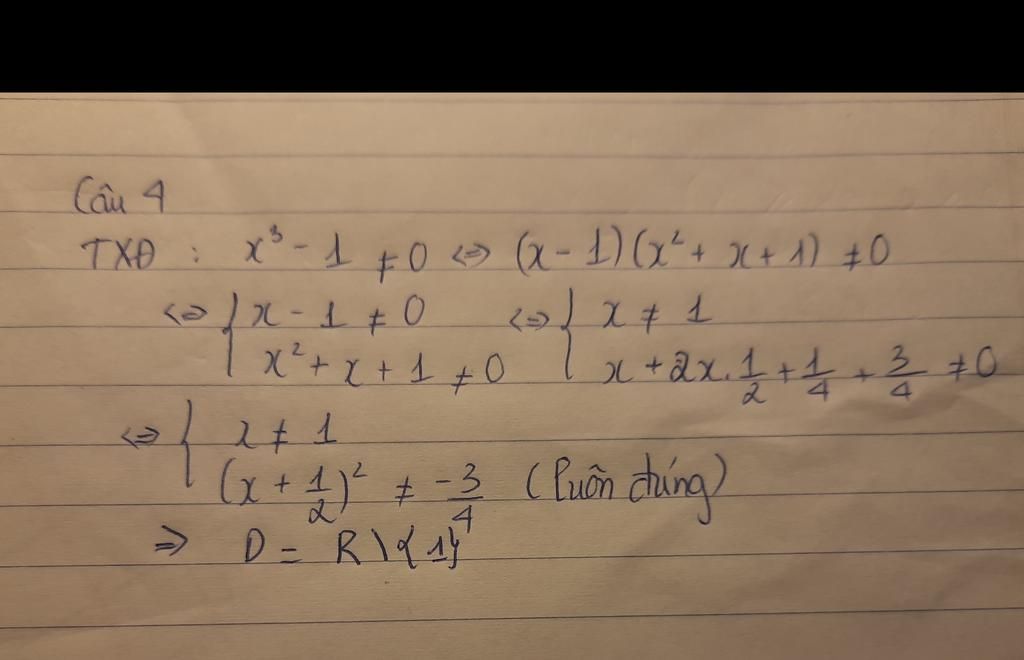 Câu 4
TXĐ : x³ - 1 ≠ 0 <=> (x - 1)(x² + x + 1) ≠ 0
<=> { x - 1 ≠ 0 <=> { x ≠ 1
x² + x + 1 ≠ 0 x + 2x. 1/2 + 1/4 + 3/4 ≠ 0
<=> { x ≠ 1
(x + 1/2)² ≠ -3/4 (luôn đúng)
=> D = R \ {1}